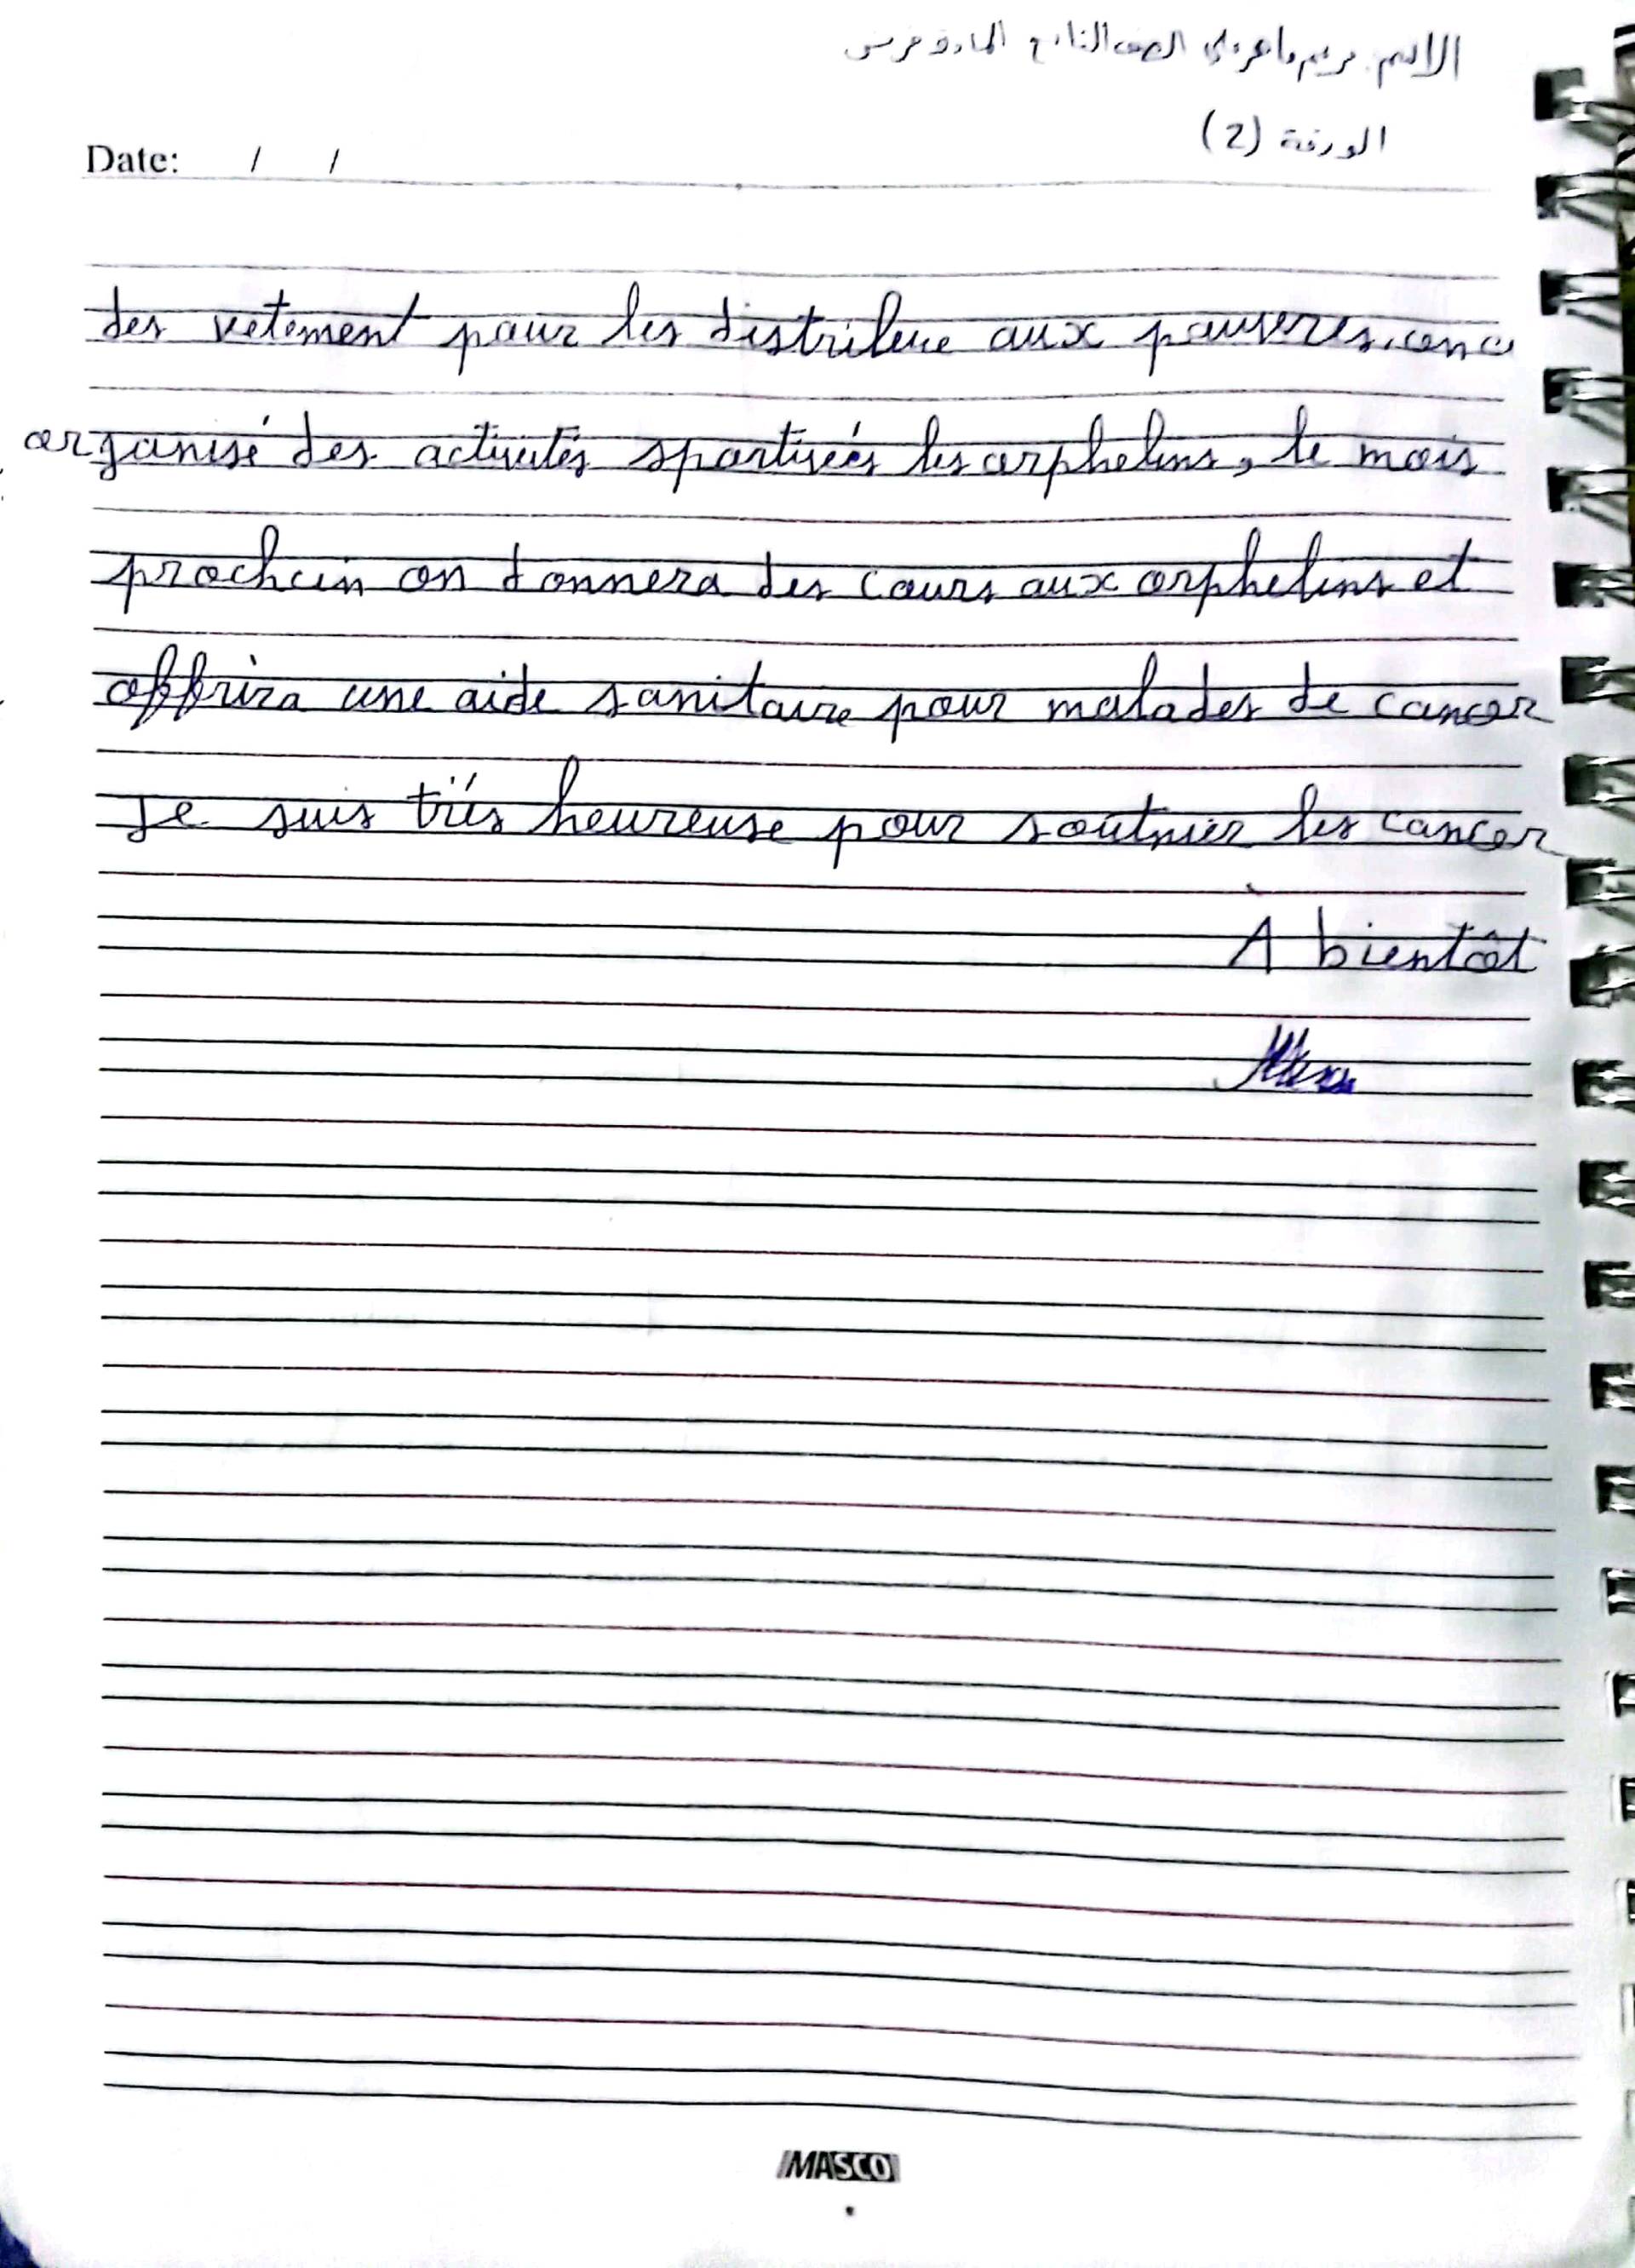 الاسم: مريم ماهر علي الصف التاسع المادة فرنسي
الورقة (2)
Date: / /
des vetement pour les distribue aux pauveres, on a
organisé des activités sportiveés les orphelins, le mois
prochain on donnera des cours aux orphelins et
offrira une aide sanitaire pour malades de cancer
Je suis triés heureuse pour soutnier les cancer
À bientôt
MASCO